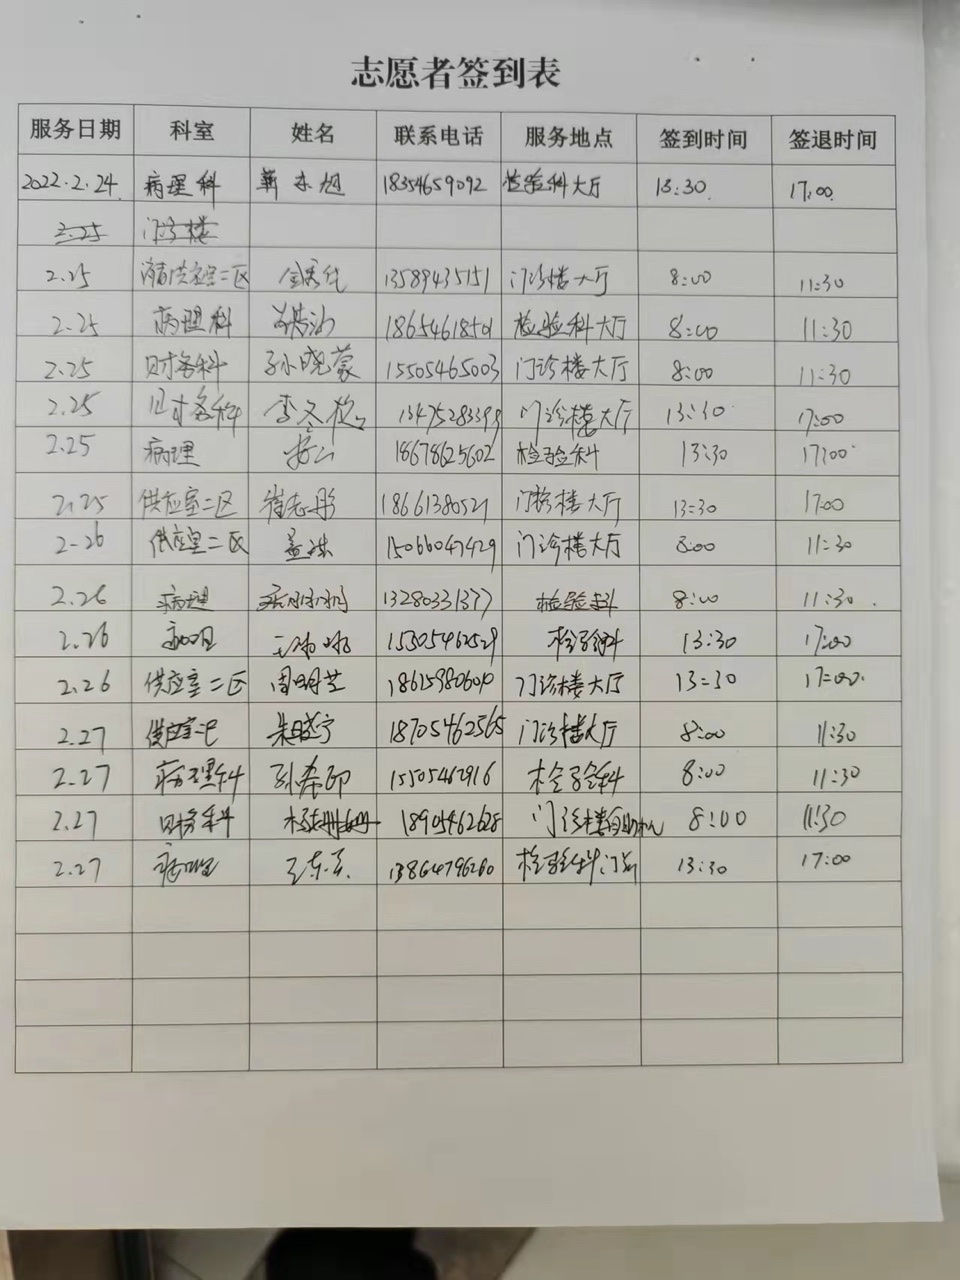 志愿者签到表
服务日期 科室 姓名 联系电话 服务地点 签到时间 签退时间
2022.2.24 病理科 18354659092 检验科大厅 13:30 17:00
2.25 门诊楼
2.25 二区 13589435151 门诊楼大厅 8:00 11:30
2.25 病理科 18654618501 检验科大厅 8:00 11:30
2.25 财务科 孙晓蒙 15505465003 门诊楼大厅 8:00 11:30
2.25 财务科 李冬梅 13475283399 门诊楼大厅 13:30 17:00
2.25 病理 18678625602 检验科 13:30 17:00
2.25 供应室二区 崔志彤 18661380521 门诊楼大厅 13:30 17:00
2-26 供应室二区 15066047429 门诊楼大厅 8:00 11:30
2.26 病理 13280331377 检验科 8:00 11:30
2.26 病理 15305462529 检验科 13:30 17:00
2.26 供应室二区 周明芝 门诊楼大厅 13:30 17:00
2.27 供应室 朱晓宁 18705462565 门诊楼大厅 8:00 11:30
2.27 病理科 15505462916 检验科 8:00 11:30
2.27 财务科 18905462628 门诊楼自助机 8:00 11:30
2.27 病理 13864796260 检验科门诊 13:30 17:00